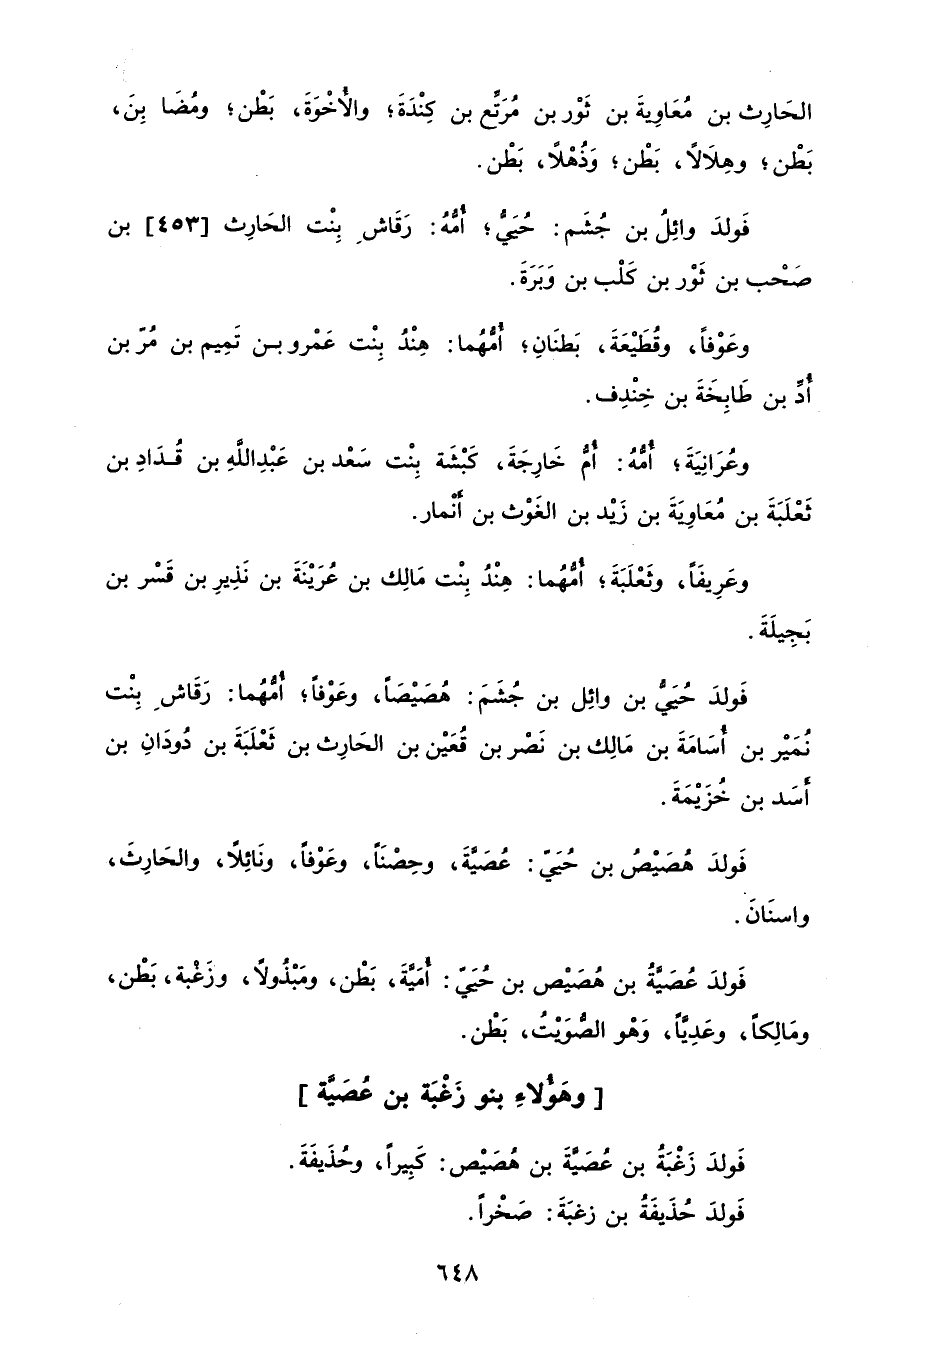 الحَارِث بن مُعَاوِيةَ بن ثَوْر بن مُرَتِّع بن كِنْدَةَ؛ والأُخْوَةَ، بَطْن؛ ومُضَا بِنَ،
بَطْن؛ وهِلَالاً، بَطْن؛ وَذُهْلاً، بَطْن.
فَولدَ وائِلُ بن جُشَم: حُيَيُّ؛ أُمُّهُ: رَقَاشِ بِنْت الحَارِث [٤٥٣] بن
صَحْب بن ثَوْر بن كَلْب بن وَبَرَةَ.
وعَوْفاً، وقُطَيْعَةَ، بَطنَانِ؛ أُمُّهُما: هِنْدُ بِنْت عَمْرو بـن تَمِيم بن مُرّ بن
أُدِّ بن طَابِخَةَ بن خِنْدِف.
وعُرَانِيَةَ؛ أُمُّهُ: أُمُّ خَارِجَةَ، كَبْشَة بِنْت سَعْد بن عَبْدِاللَّهِ بن قُـدَادِ بن
ثَعْلَبَةَ بن مُعَاوِيَةَ بن زَيْد بن الغَوْث بن أَنْمار.
وعَرِيفَاً، وثَعْلَبَةَ؛ أُمُّهُما: هِنْدُ بِنْت مَالِك بن عُرَيْنَةَ بن نَذِيرِ بن قَسْر بن
بَجِيلَةَ.
فَولدَ حُيَيُّ بن وائِل بن جُشَمَ: هُصَيْصَاً، وعَوْفاً؛ أُمُّهُما: رَقَاشِ بِنْت
نُمَيْر بن أُسَامَةَ بن مَالِك بن نَصْر بن قُعَيْن بن الحَارِث بن ثَعْلَبَةَ بن دُودَانِ بن
أَسَد بن خُزَيْمَةَ.
فَولدَ هُصَيْصُ بن حُيَيّ: عُصَيَّةَ، وحِصْنَاً، وعَوْفاً، ونَائِلًا، والحَارِثَ،
واسنَانَ.
فَولدَ عُصَيَّةُ بن هُصَيْص بن حُيَيّ: أُمَيَّةَ، بَطْن، ومَبْذُولاً، وزَغْبة، بَطْن،
ومَالِكاً، وعَدِيَّاً، وَهْو الصُّوَيْتُ، بَطْن.
[ وهَؤُلاءِ بنو زَغْبَة بن عُصَيَّة ]
فَولدَ زَغْبَةُ بن عُصَيَّةَ بن هُصَيْص: كَبِيراً، وحُذَيفَةَ.
فَولدَ حُذَيفَةُ بن زغبَةَ: صَخْراً.
٦٤٨